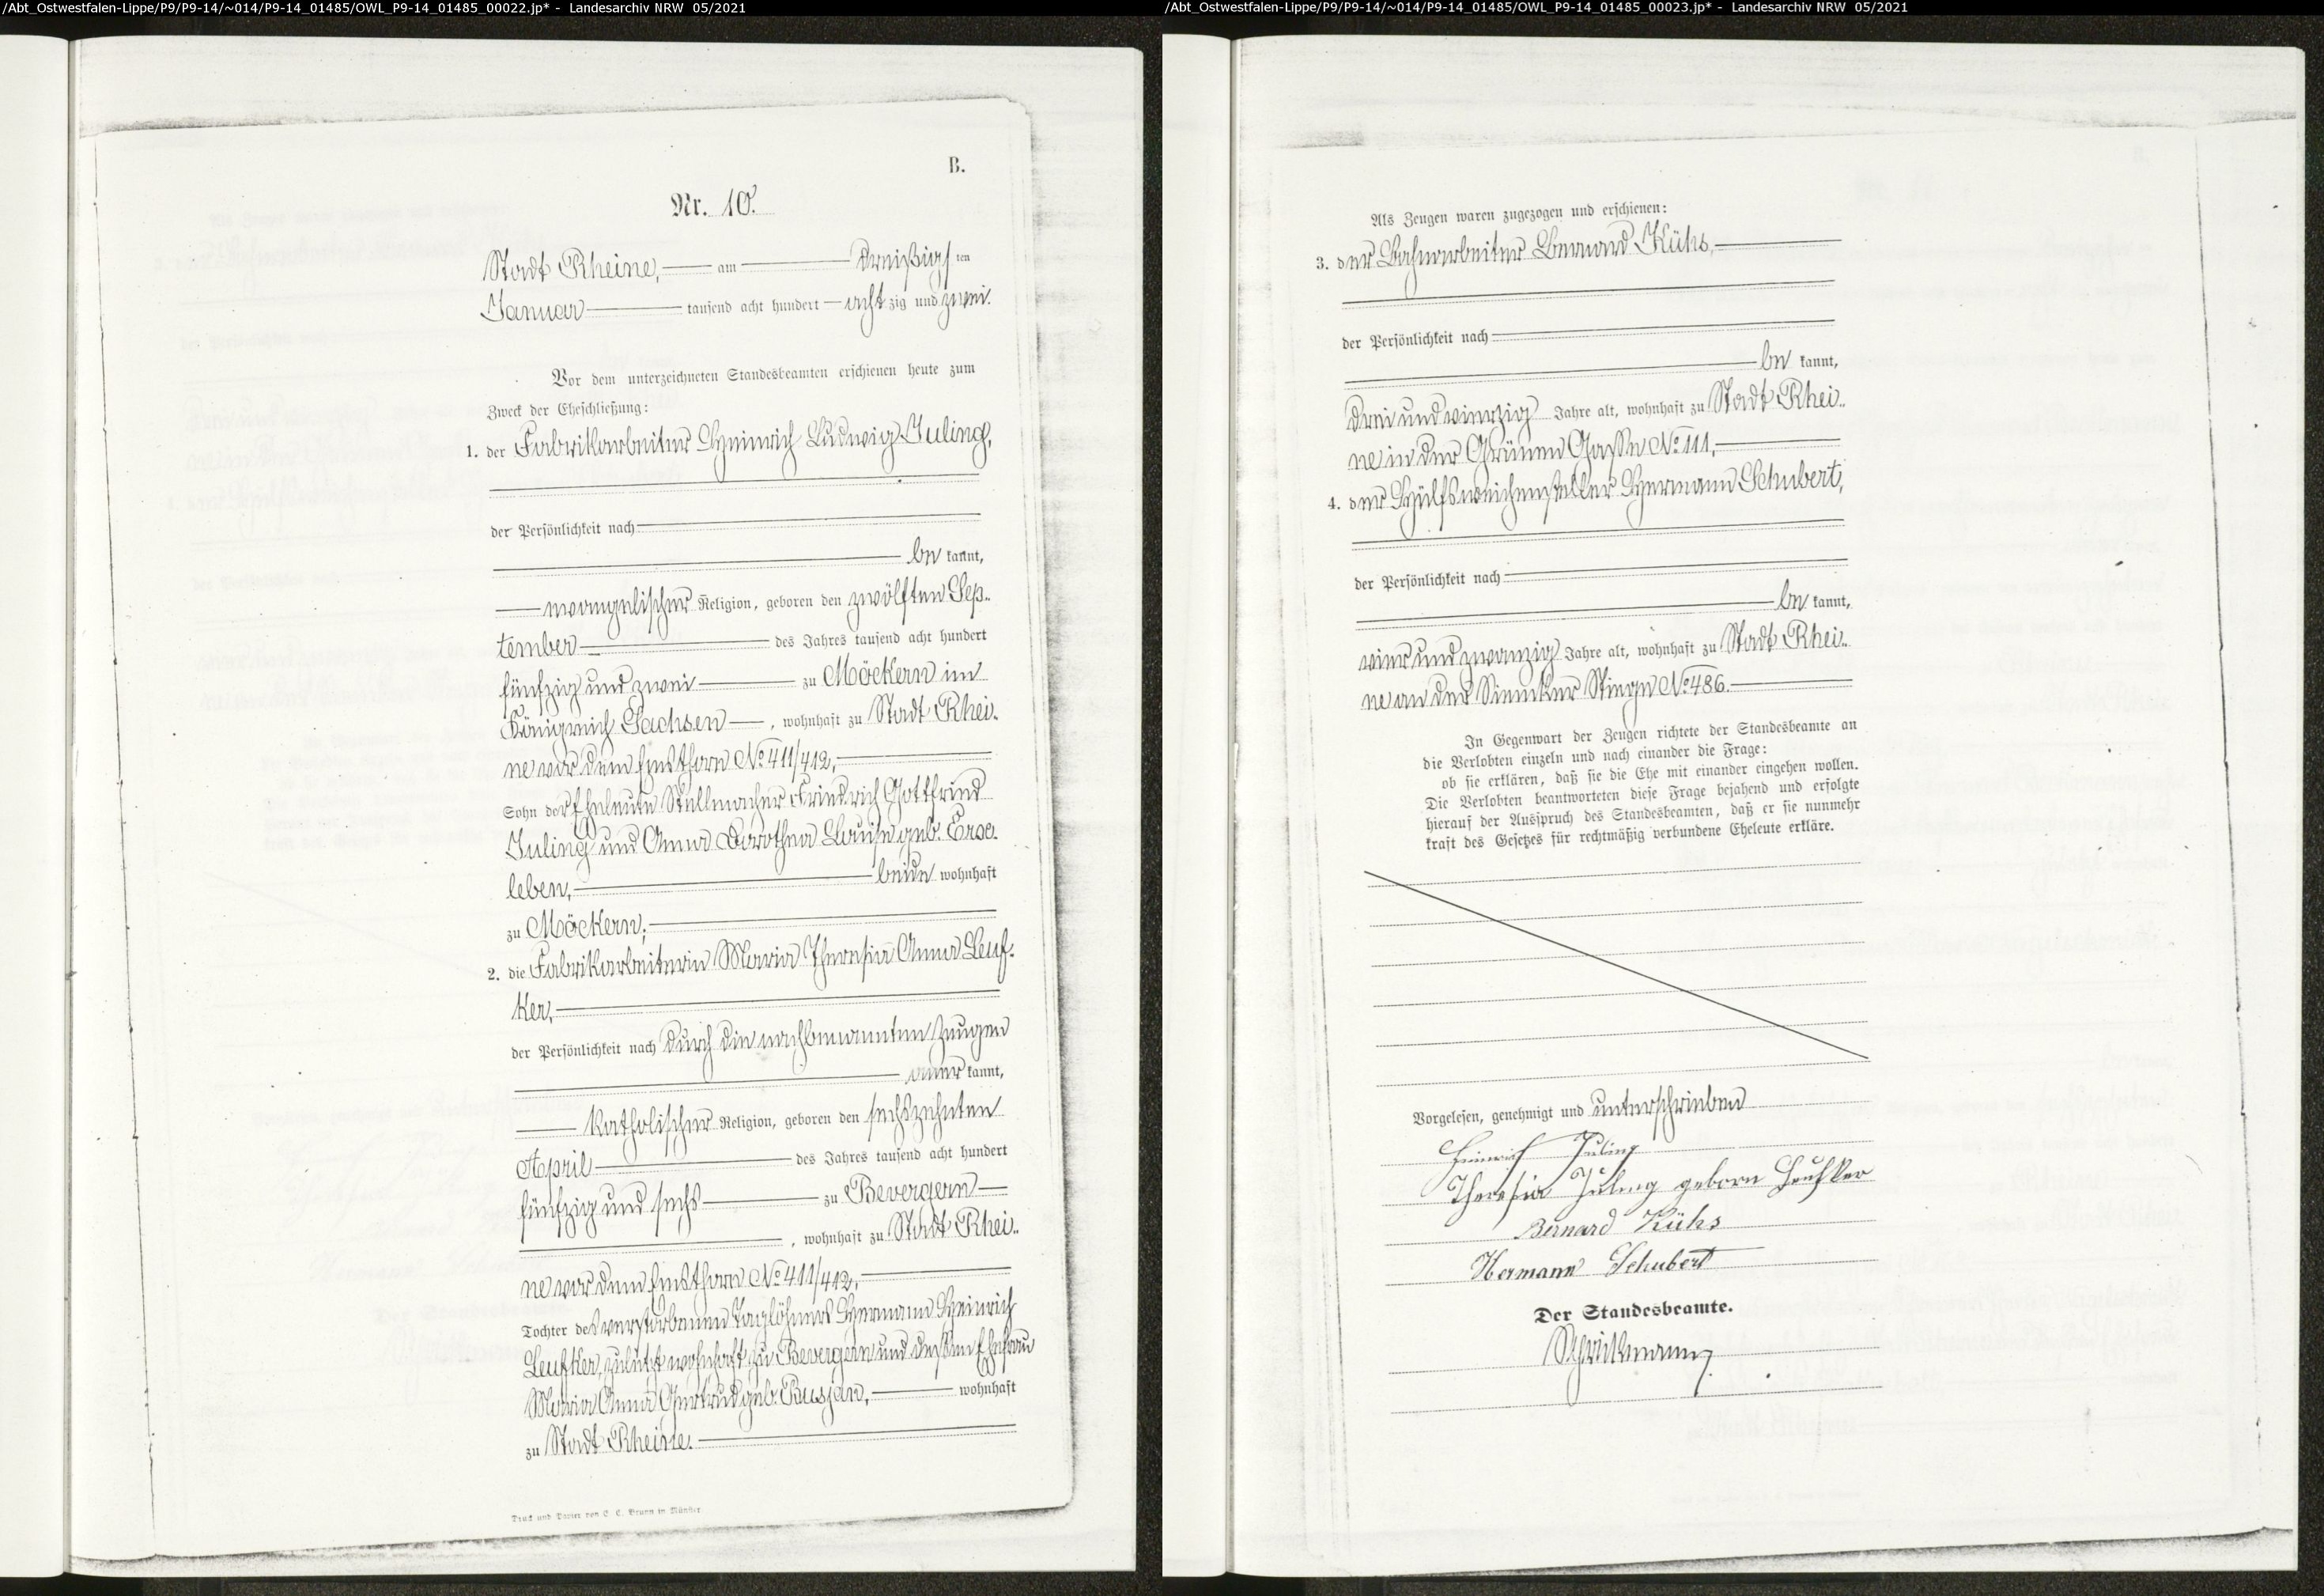 /Abt_Ostwestfalen-Lippe/P9/P9-14/~014/P9-14_01485/OWL_P9-14_01485_00022.jp* - Landesarchiv NRW 05/2021
B.
Nr. 10.
Stadt Rheine, am dreißigsten
Januar tausend acht hundert achtzig und zwei.
Vor dem unterzeichneten Standesbeamten erschienen heute zum
Zweck der Eheschließung:
1. der Fabrikarbeiter Heinrich Ludwig Juling,
der Persönlichkeit nach
be kannt,
evangelischer Religion, geboren den zwölften Sep-
tember des Jahres tausend acht hundert
fünfzig und zwei zu Möckern im
Königreich Sachsen, wohnhaft zu Stadt Rhei-
ne vor dem Emsthore No 411/412,
Sohn der Eheleute Stellmacher Friedrich Gottfried
Juling und Anna Dorothea Louise geb. Erxe-
leben, beide wohnhaft
zu Möckern;
2. die Fabrikarbeiterin Maria Theresia Anna Leuf-
ker,
der Persönlichkeit nach durch die nachbenannten Zeugen
aner kannt,
katholischer Religion, geboren den sechszehnten
April des Jahres tausend acht hundert
fünfzig und sechs zu Bevergern
, wohnhaft zu Stadt Rhei-
ne vor dem Emsthore No 411/412,
Tochter des verstorbenen Taglöhners Hermann Heinrich
Leufker, zuletzt wohnhaft zu Bevergern und dessen Ehefrau
Maria Anna Gertrud geb. Rusjan, wohnhaft
zu Stadt Rheine.
Druck und Papier von C. C. Brunn in Münster
/Abt_Ostwestfalen-Lippe/P9/P9-14/~014/P9-14_01485/OWL_P9-14_01485_00023.jp* - Landesarchiv NRW 05/2021
Als Zeugen waren zugezogen und erschienen:
3. der Bahnarbeiter Bernard Kühs,
der Persönlichkeit nach
be kannt,
drei und vierzig Jahre alt, wohnhaft zu Stadt Rhei-
ne in der Grünen Gasse No 111,
4. der Hülfsweichensteller Hermann Schubert,
der Persönlichkeit nach
be kannt,
vier und zwanzig Jahre alt, wohnhaft zu Stadt Rhei-
ne an der Stiege No 486.
In Gegenwart der Zeugen richtete der Standesbeamte an
die Verlobten einzeln und nach einander die Frage:
ob sie erklären, daß sie die Ehe mit einander eingehen wollen.
Die Verlobten beantworteten diese Frage bejahend und erfolgte
hierauf der Ausspruch des Standesbeamten, daß er sie nunmehr
kraft des Gesetzes für rechtmäßig verbundene Eheleute erkläre.
Vorgelesen, genehmigt und unterschrieben
Heinrich Juling
Theresia Juling geborn Leufker
Bernard Kühs
Hermann Schubert
Der Standesbeamte.